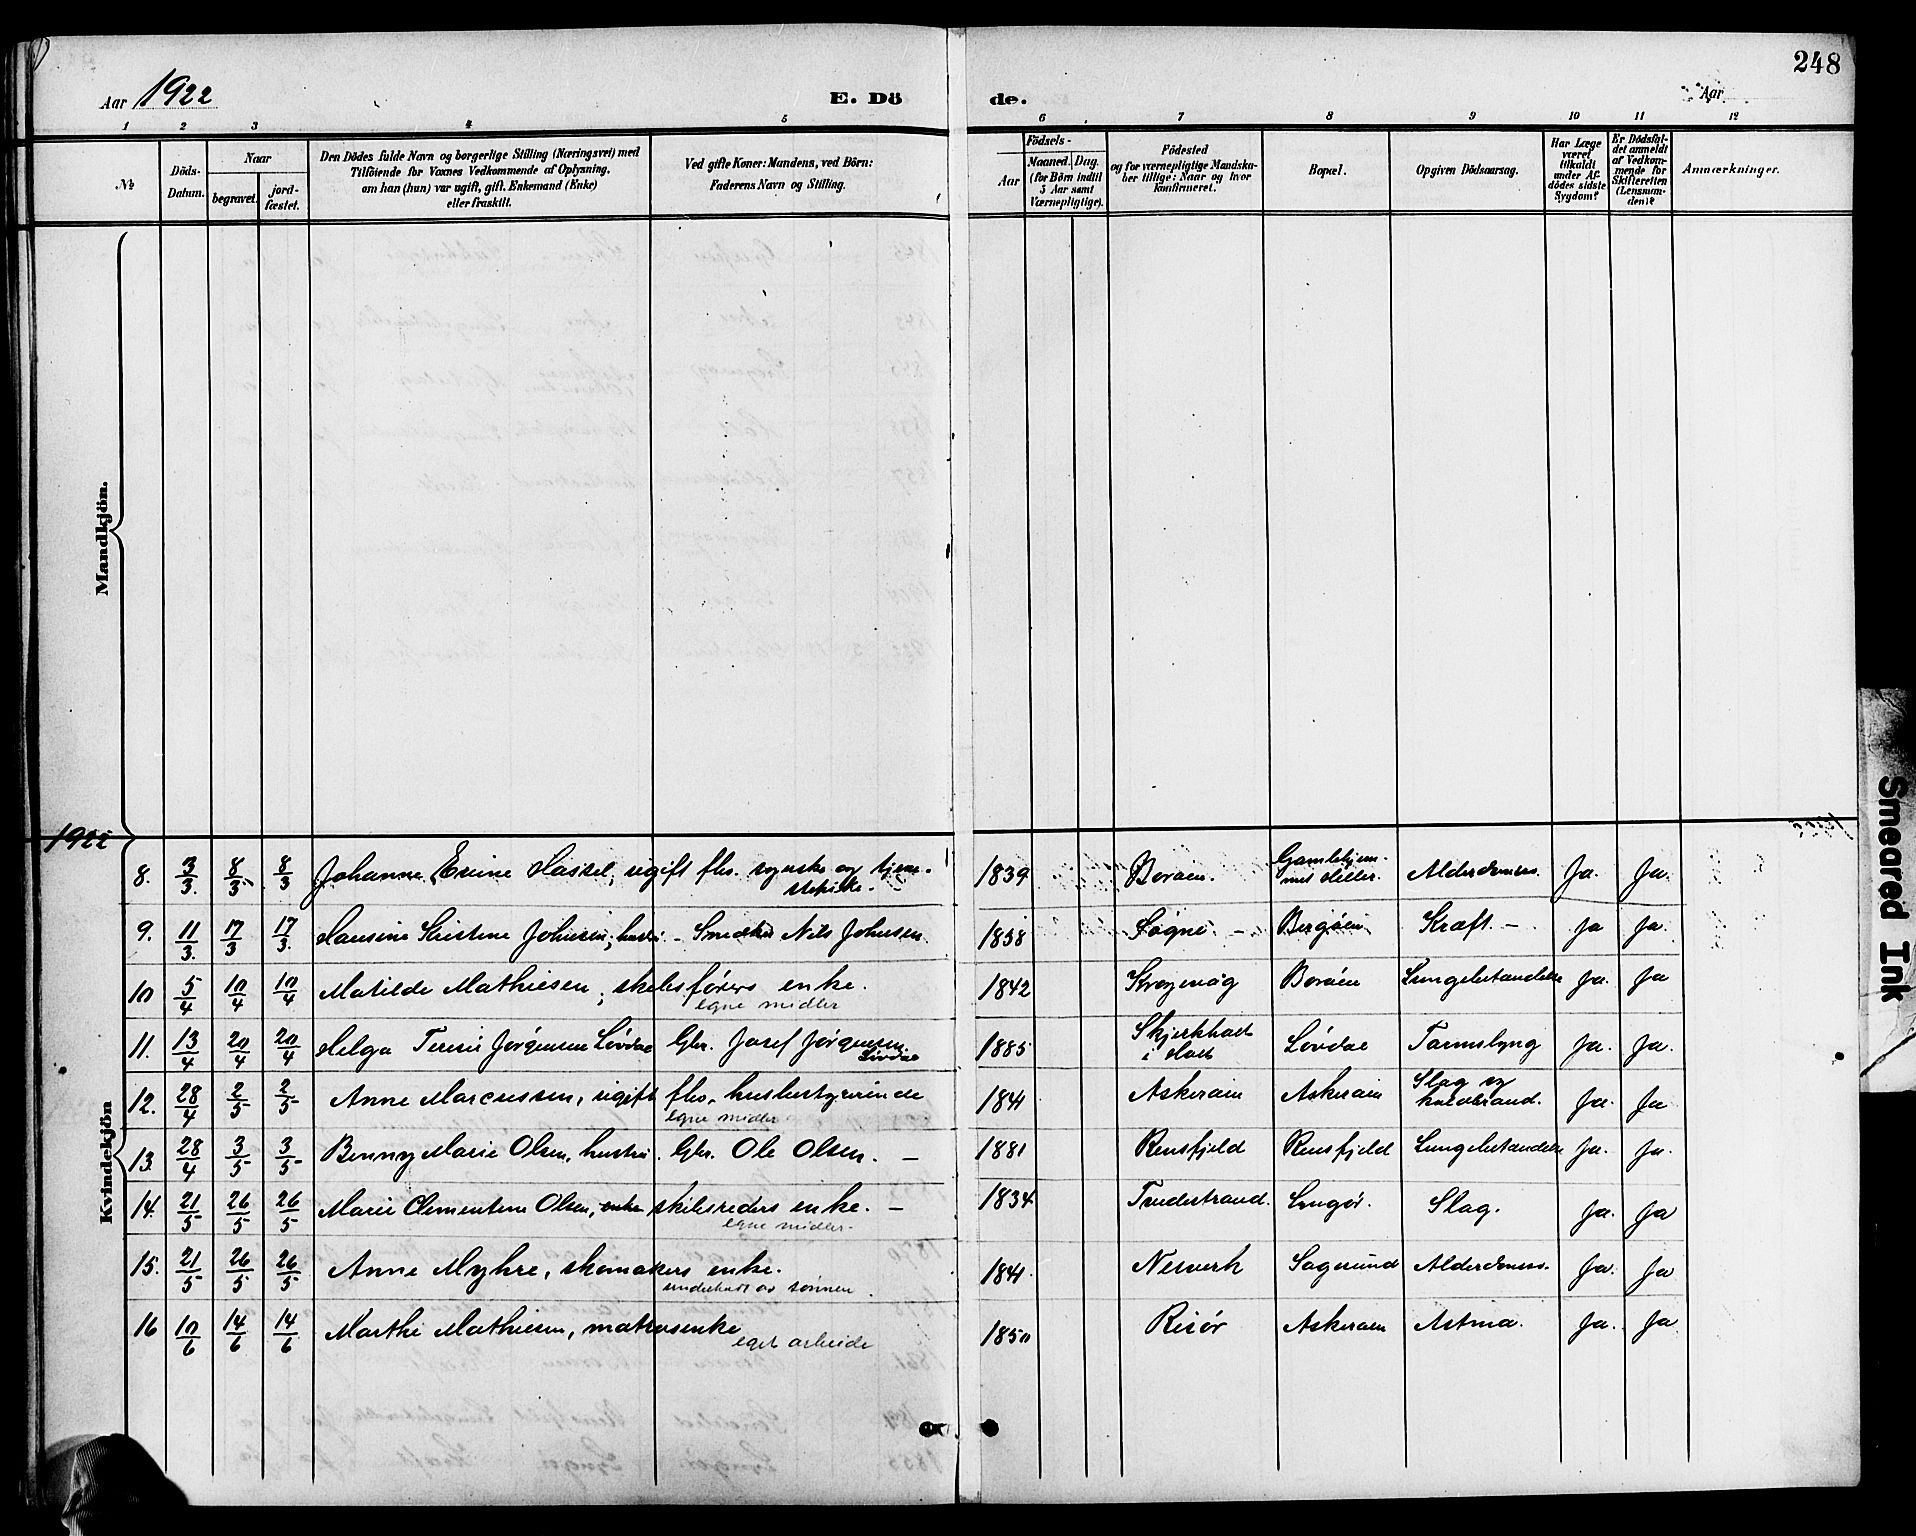 248
Aar 1922
E. Dö
de.
Aar
1 2 3 4 5 6 7 8 9 10 11 12
№
Döds-
Datum.
Naar
begravet.
jord-
fæstet.
Den Dödes fulde Navn og borgerlige Stilling (Næringsvei) med
Tilföiende for Voxnes Vedkommende af Oplysning,
om han (hun) var ugift, gift, Enkemand (Enke)
eller fraskilt.
Ved gifte Koner: Mandens, ved Börn:
Faderens Navn og Stilling.
Födsels-
Aar
Maaned. Dag.
(for Börn indtil
5 Aar samt
Værnepligtige).
Födested
og for værnepligtige Mandska-
ber tillige: Naar og hvor
konfirmeret.
Bopæl.
Opgiven Dödsaarsag.
Har Læge
været
tilkaldt
under Af-
dödes sidste
Sygdom?
Er Dödsfal-
det anmeldt
af Vedkom-
mende for
Skifteretten
(Lensman-
den)?
Anmærkninger.
Mandkjön.
1922
Kvindekjön
8. 3/3 8/3 8/3 Johanne Hassel, ugift fhv. og tjene-
stepike. 1839 Boröen. Gamlehjem- Alderdomssv. Ja. Ja.
9. 11/3. 17/3 17/3. Hansine Kristine Johnsen, hustru - Nils Johnsen. 1838 Søgne. - Bergöen Kræft. - Ja Ja.
10 5/4 10/4 10/4 Matilde Mathiesen, skibsførers enke. 1842 Boröen Lungebetændelse Ja. Ja
egne midler
11. 13/4 20/4 20/4 Helga Terese Jørgensen Løvdal Gbr. Josef Jørgensen 1885 Løvdal Tarmslyng Ja. Ja.
Løvdal
12. 28/4 2/5 2/5 Anne Marcussen, ugift fhv. husbestyrerinde 1841 Askeröen Askeröen Slag og
koldbrand. Ja. Ja
egne midler
13. 28/4 3/5 3/5 Benny Marie Olsen, hustru. Gbr. Ole Olsen. - 1881 Rensfjeld Rensfjeld Lungebetændelse Ja. Ja.
14. 21/5 26/5 26/5 Marie Clementine Olsen, enke skibsreders enke. - 1834 Trudestrand. Lyngør. Slag. Ja. Ja
egne midler.
15. 21/5 26/5 26/5 Anne Myhre, skomakers enke. 1841. Nesverk Sagesund Alderdomssv. Ja. Ja
underholdt av sønnen.
16 10/6 14/6 14/6 Marthe Mathiesen, matrosenke 1850 Risør Askeröen Astma. Ja. Ja
eget arbeide
Smeared Ink